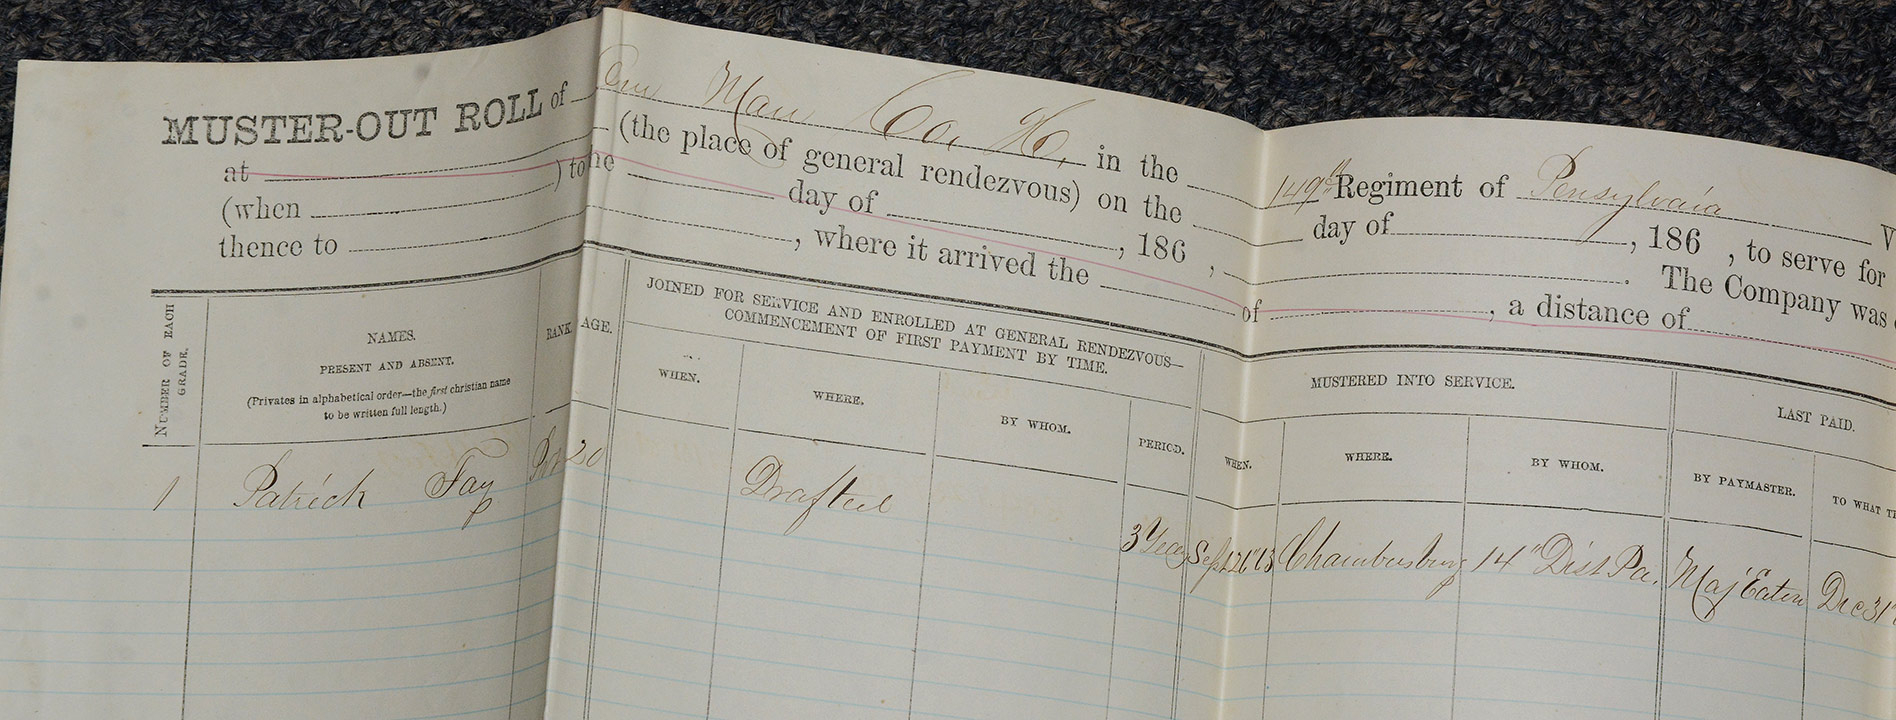 MUSTER-OUT ROLL of One Man Co. H, in the 149th Regiment of Pensylvaia V
at (the place of general rendezvous) on the day of , 186 , to serve for
(when ) to he day of , 186 , . The Company was
thence to , where it arrived the of , a distance of
NUMBER OF EACH GRADE.
NAMES.
PRESENT AND ABSENT.
(Privates in alphabetical order—the first christian name
to be written full length.)
RANK.
AGE.
JOINED FOR SERVICE AND ENROLLED AT GENERAL RENDEZVOUS—
COMMENCEMENT OF FIRST PAYMENT BY TIME.
WHEN.
WHERE.
BY WHOM.
PERIOD.
MUSTERED INTO SERVICE.
WHEN.
WHERE.
BY WHOM.
LAST PAID.
BY PAYMASTER.
TO WHAT TI
1 Patrick Fay 20 Drafted 3 Years Sept 26 '63 Chambersburg 14" Dist Pa. Maj Eaton Dec 31